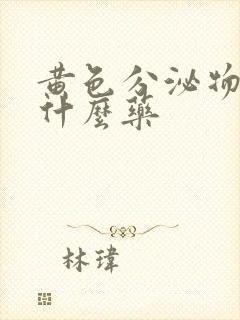 黃色分泌物
什麼藥
林瑋